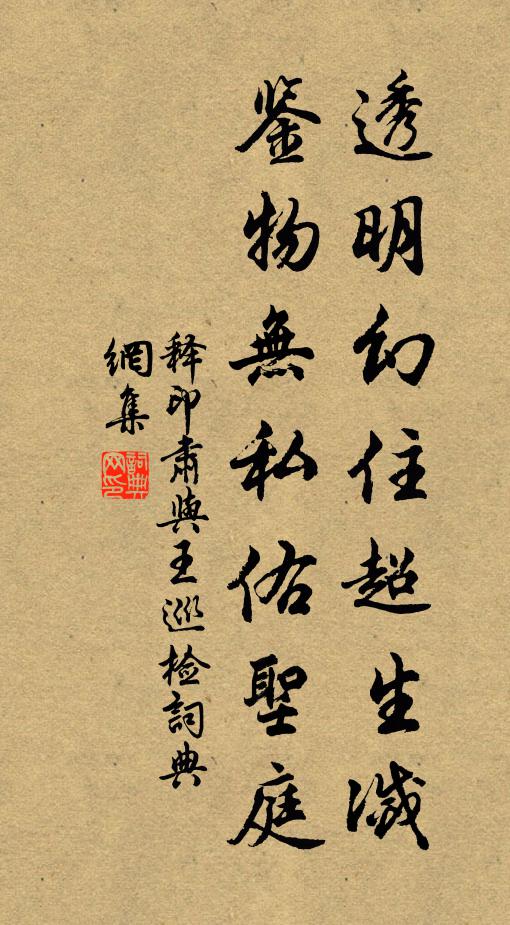 透明幻住超生滅
鉴物無私佑聖庭
释印肅與王巡檢詞典
網集
詞典
网印